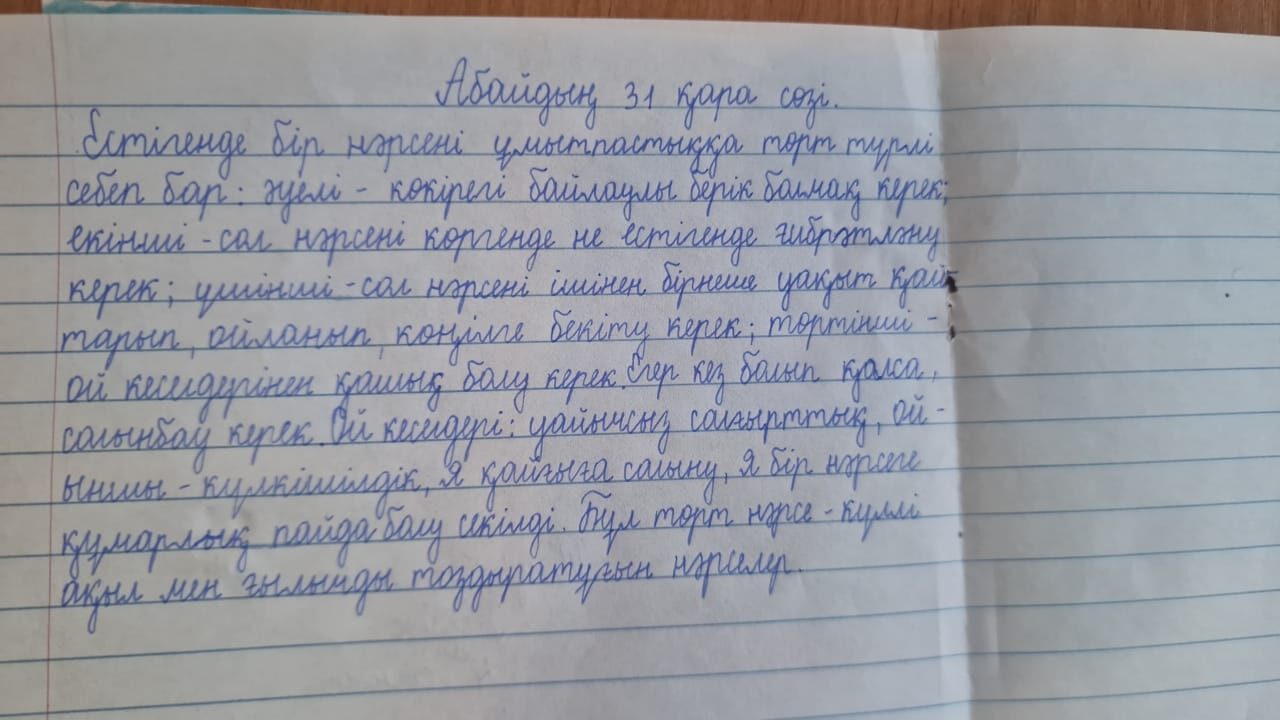 Абайдың 31 қара сөзі.
Естігенде бір нәрсені ұмытпастыққа төрт түрлі
себеп бар: әуелі - көкірегі байлаулы берік болмақ керек;
екінші - сол нәрсені көргенде не естігенде ғибрәтләну
керек; үшінші - сол нәрсені ішінен бірнеше уақыт қай
тарып, ойланып, көңілге бекіту керек; төртінші -
ой кеселдерінен қашық болу керек. Егер кез болып қалса,
салынбау керек. Ой кеселдері: уайымсыз салғырттық, ой-
ыншы - күлкішілдік, я қайғыға салыну, я бір нәрсеге
құмарлық пайда болу секілді. Бұл төрт нәрсе - күллі
ақыл мен ғылымды тоздыратұғын нәрселер.